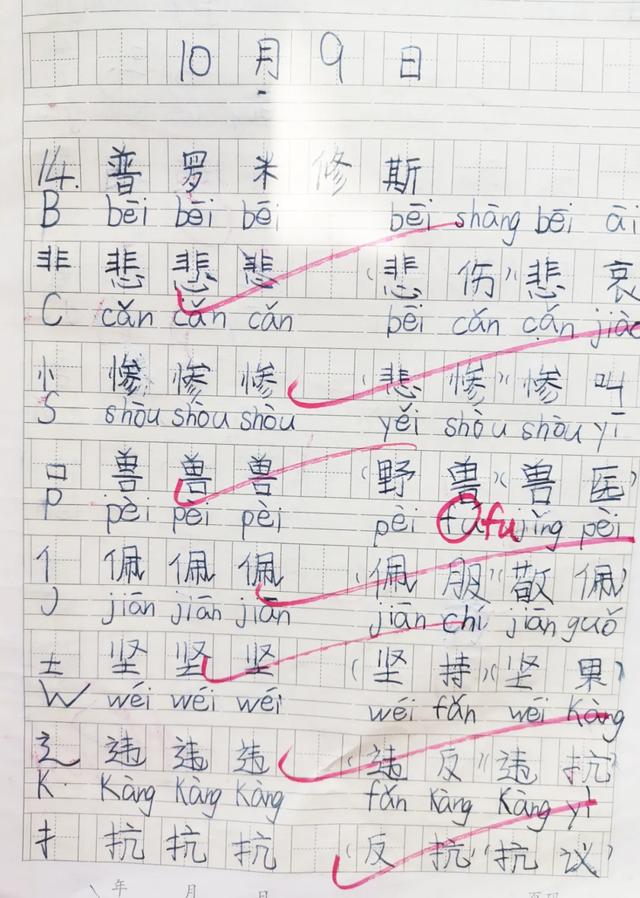 10月9日
14. 普罗米修斯
B bēi bēi bēi bēi shāng bēi āi
非 悲 悲 悲 (悲伤)(悲哀
C cǎn cǎn cǎn bēi cǎn cǎn jiào
忄 惨 惨 惨 (悲惨)(惨叫
S shòu shòu shòu yěi shòu shòu yī
口 兽 兽 兽 (野兽)(兽医)
P pèi pèi pèi pèi fú fu jǐng pèi
亻 佩 佩 佩 (佩服)(敬佩)
J jiān jiān jiān jiān chí jiān guǒ
土 坚 坚 坚 (坚持)(坚果)
W wéi wéi wéi wéi fǎn wéi Kàng
辶 违 违 违 (违反)(违抗)
K Kàng Kàng Kàng fǎn Kàng Kàng yì
扌 抗 抗 抗 (反抗)(抗议)
年 月 日